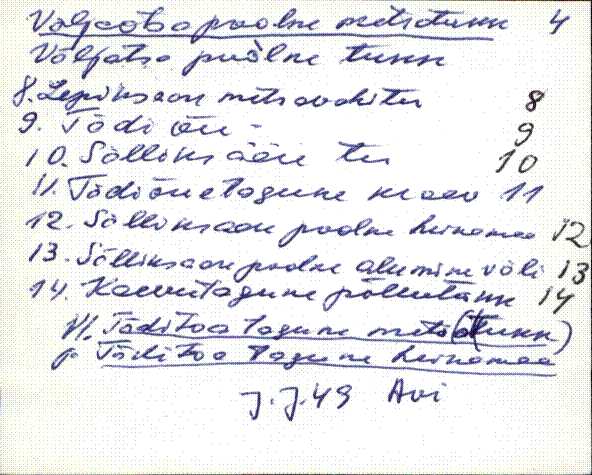 Väljaotsapoolne metsatukk 4
Väljatsa puolne tukk
8. Lepiksaare metsavahitu 8
9. Tädi õu - 9
10. Sõlliksääre tu 10
11. Tädiõuetagune kraav 11
12. Sõlliksaare poolne heinamaa 12
13. Sõlliksaare poolne alumine väli 13
14. Kaevetagune põllutükk 14
Täditoa tagune metsa(tukk)
Täditoa tagune heinamaa
J.J.49 Avi